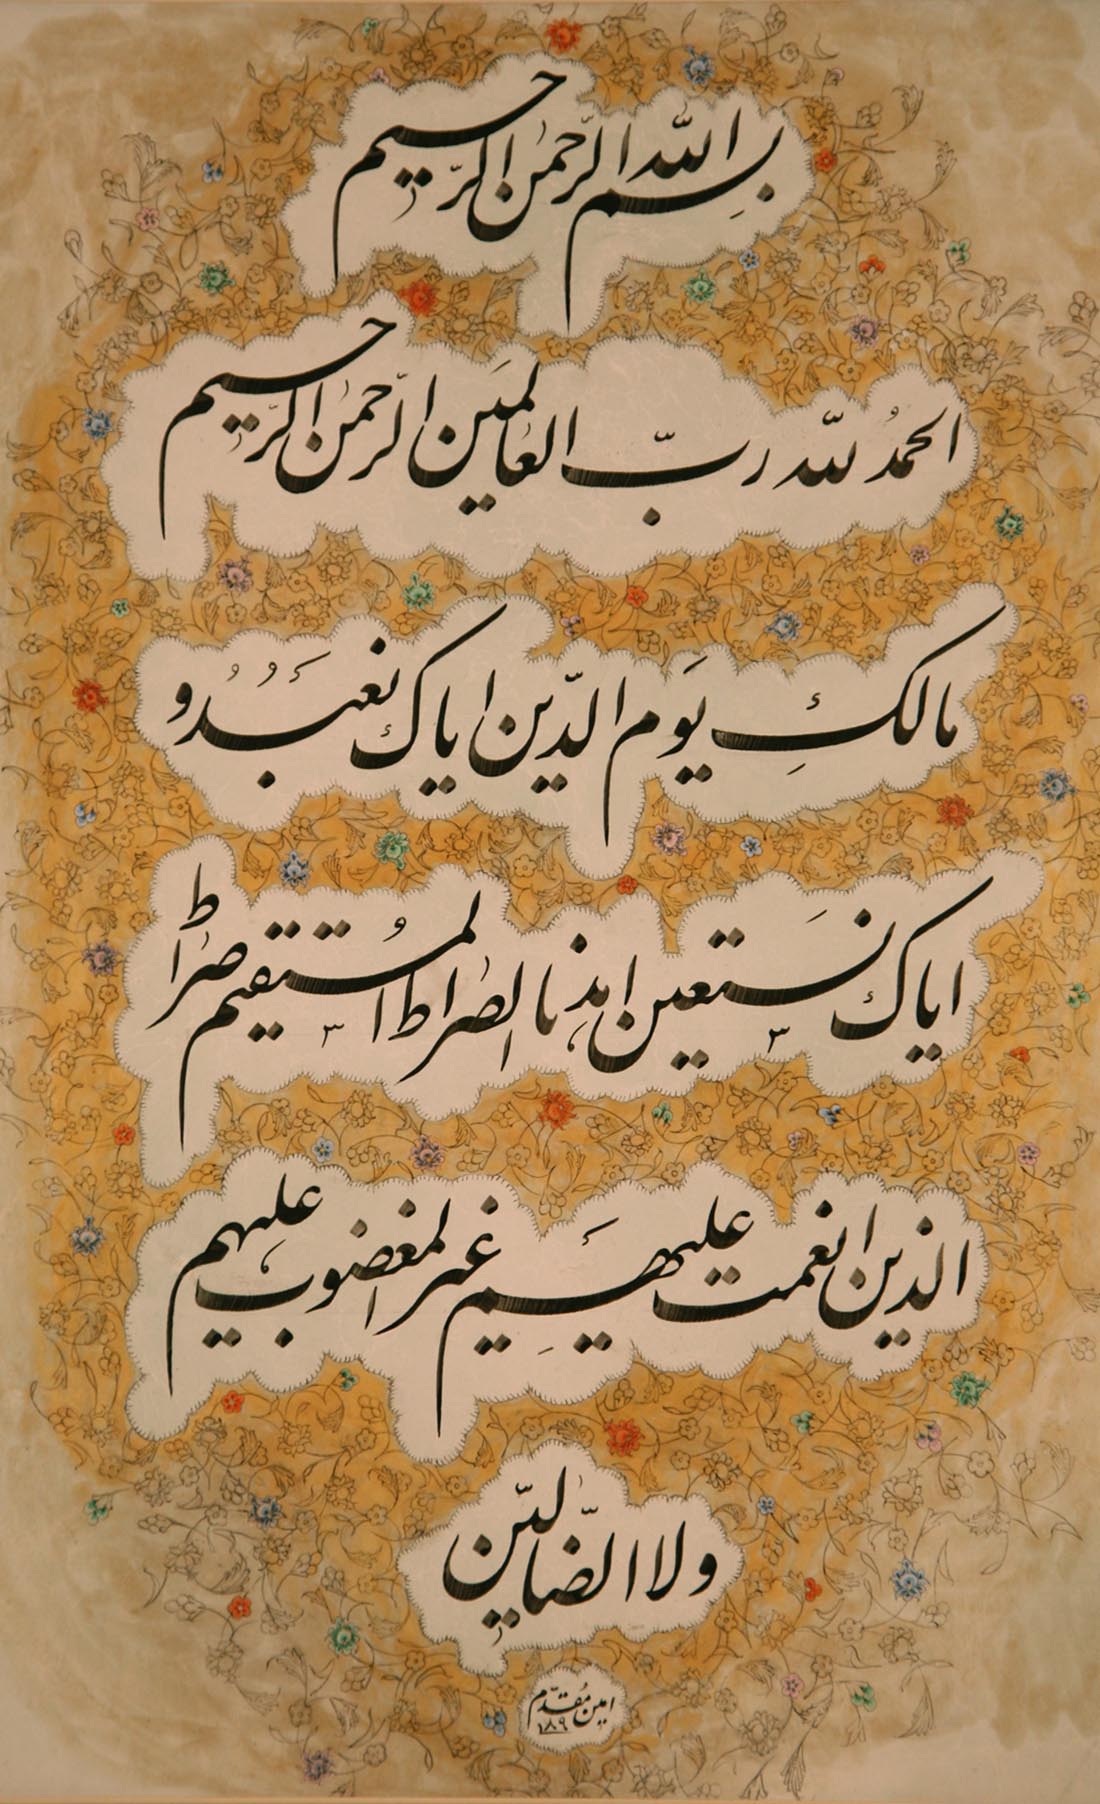 بسم الله الرحمن الرحیم
الحمدُ لله رب العالمین الرحمن الرحیم
مالکِ یَوم الدّین ایاک نعبُدُ و
ایاک نستعین اهدنا الصراط المُستقیم صراط
الذین انعمت علیهِم غیر المغضوب علیهم
ولا الضّالّین
امین مُقدّم
۱۸۹